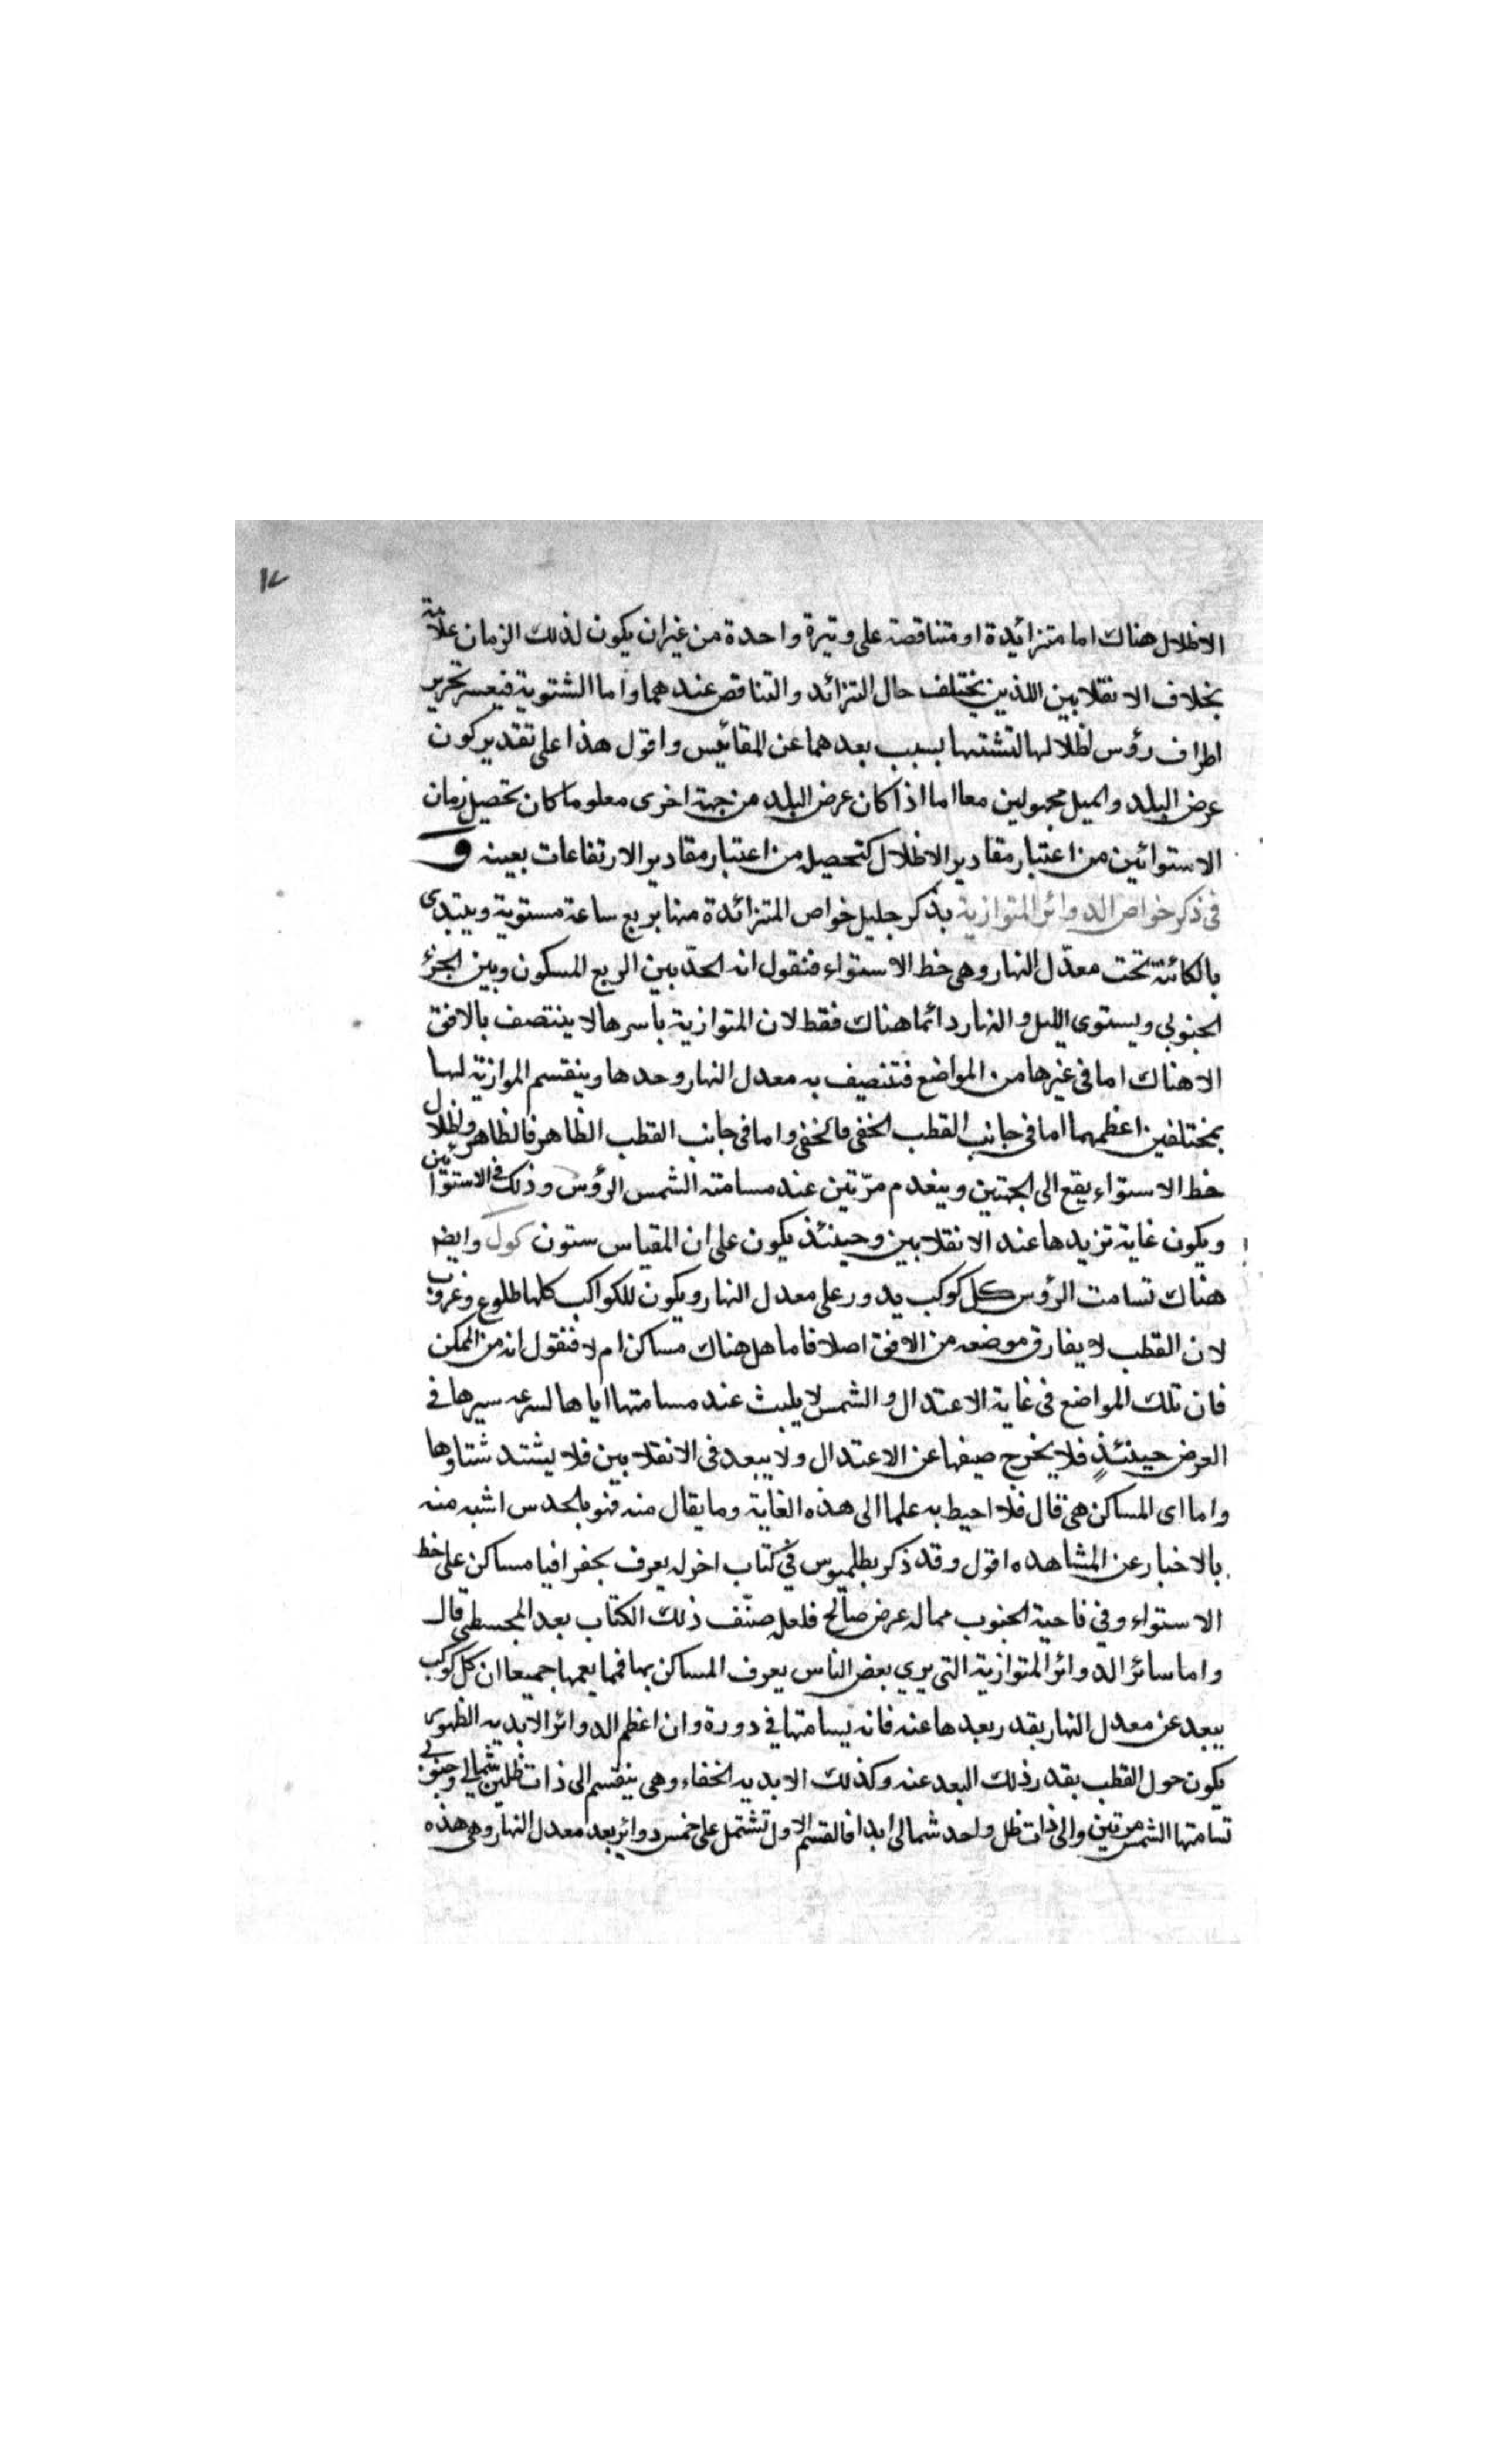 ١٧
الاظلال هناك اما متزائيدة او متناقصة على وتيرة واحدة من غير ان يكون لذلك الزمان علامة
بخلاف الانقلابين اللذين يختلف حال التزائد والتناقص عندهما واما الشتوية فيعسر تحرير
اطراف رؤس اظلالها لتشتتها بسبب بعدهما عن المقائيس واقول هذا على تقدير كون
عرض البلد والميل مجهولين معا اما اذا كان عرض البلد من جهة اخرى معلوما كان تحصيل زمان
الاستوائين من اعتبار مقادير الاظلال كتحصيله من اعتبار مقادير الارتفاعات بعينه و
فى ذكر خواص الدوائر المتوازية بذكر جليل خواص المتزائدة منها بربع ساعة مستوية ويبتدى
بالكائنة تحت معدّل النهار وهى خط الاستواء فنقول انه الحدّ بين الربع المسكون وبين الجزء
الجنوبى ويستوى الليل والنهار دائما هناك فقط لان المتوازية باسرها لا ينتصف بالافق
الا هناك اما فى غيرها من المواضع فتنصيف به معدل النهار وحدها وينقسم الموازية لها
بمختلفين اعظمهما اما فى جانب القطب الخفى فالخفى واما فى جانب القطب الظاهر فالظاهر واظلال
خط الاستواء يقع الى الجهتين وينعدم مرّتين عند مسامتة الشمس الرؤس وذلك فى الاستوائين
ويكون غاية تزيدها عند الانقلابين وحينئذ يكون على ان المقياس ستون كول وايضا
هناك تسامت الرؤس كل كوكب يدور على معدل النهار ويكون للكواكب كلها طلوع وغروب
لان القطب لا يفارق موضعه من الافق اصلا فاما هل هناك مساكن ام لا فنقول انه من الممكن
فان تلك المواضع فى غاية الاعتدال والشمس لا يلبث عند مسامتها اياها لسرعه سيرها فى
العرض حينئذٍ فلا يخرج صيفها عن الاعتدال ولا يبعد فى الانقلابين فلا يشتد شتاوها
واما اى المساكن هى قال فلا احيط به علما الى هذه الغاية وما يقال منه فهو بالحدس اشبه منه
بالاخبار عن المشاهده اقول وقد ذكر بطلميوس فى كتاب اخر له يعرف بجغرافيا مساكن على خط
الاستواء وفى ناحية الجنوب مما له عرض صالح فلعله صنّف ذلك الكتاب بعد المجسطى قال
واما سائر الدوائر المتوازية التى يرى بعض الناس يعرف المساكن بها فمما يعمها جميعا ان كل كوكب
يبعد عن معدل النهار بقدر بعدها عنه فانه يسامتها فى دورة وان اعظم الدوائر الابديه الظهور
يكون حول القطب بقدر ذلك البعد عنه وكذلك الابديه الخفاء وهى ينقسم الى ذات ظلين شمالى وجنوبى
تسامتها الشمس مرتين والى ذات ظل واحد شمالى ابدا فالقسم الاول تشتمل على خمس دوائر بعد معدل النهار وهى هذه